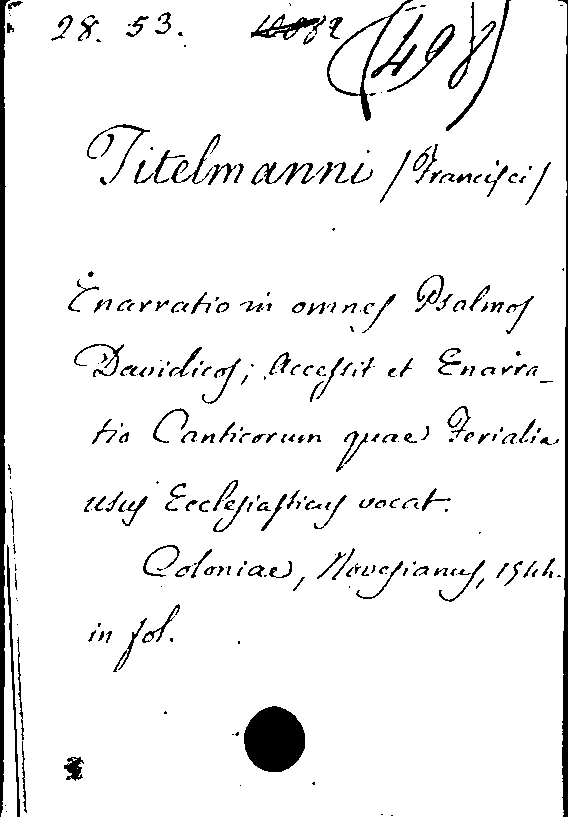 28. 53. (498)
Titelmanni /Francisci/
Enarratio in omnes Psalmos
Davidicos; Accessit et Enarra-
tio Canticorum quae Ferialia
usus Ecclesiasticus vocat.
Coloniae, Novesianus, 1544.
in fol.